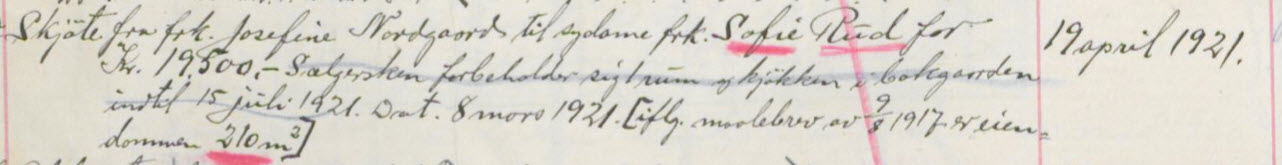 Skjöte fra frk. Josefine Nordgaard til sydame frk. Sofie Rud for
Kr. 19,500,- Sælgersken forbeholder sig 1 rum og kjökken i bakgaarden
indtil 15 juli 1921. Dat. 8 mars 1921. [iflg. maalebrev av 9/8 1917 er eien-
dommen 210 m²]
19 april 1921.